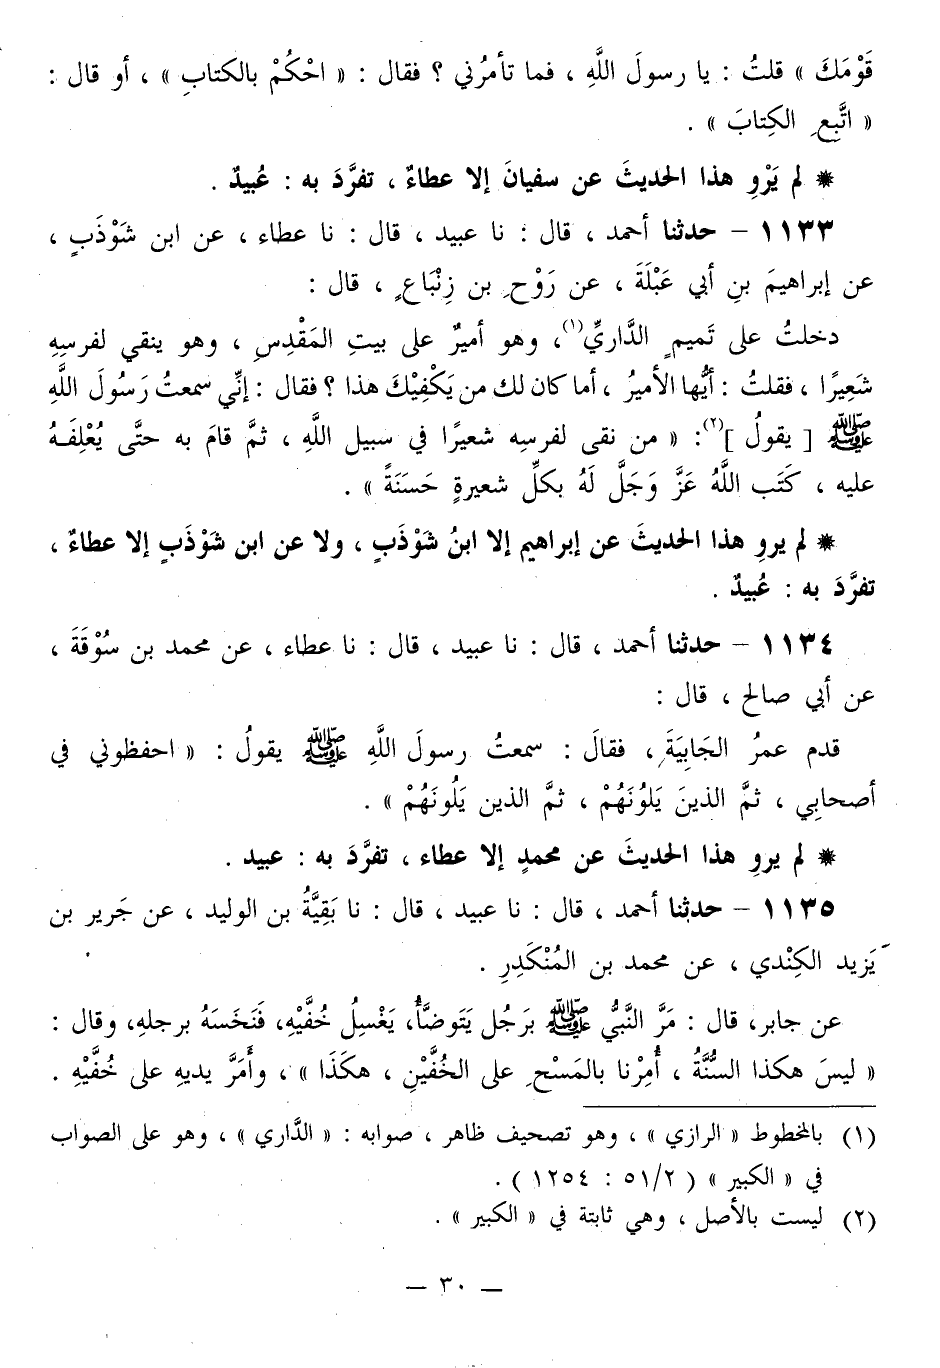 قَوْمَكَ » قلتُ : يا رسولَ اللَّهِ ، فما تأمرُني ؟ فقال : « احْكُمْ بالكتابِ » ، أو قال :
« اتَّبِعِ الكِتابَ » .
* لم يَرْوِ هذا الحديثَ عن سفيانَ إلا عطاءٌ ، تفرَّدَ به : عُبيدٌ .
١١٣٣ – حدثنا أحمد ، قال : نا عبيد ، قال : نا عطاء ، عن ابن شَوْذَبٍ ،
عن إبراهيمَ بنِ أبي عَبْلَةَ ، عن رَوْحِ بن زِنْبَاعٍ ، قال :
دخلتُ على تَميمٍ الدَّاريِّ(١)، وهو أميرٌ على بيتِ المَقْدِسِ ، وهو ينقي لفرسِهِ
شَعِيرًا ، فقلتُ : أيُّها الأميرُ ، أما كان لك من يَكْفِيْكَ هذا ؟ فقال : إنِّي سمعتُ رَسُولَ اللَّهِ
ﷺ [ يقولُ ](٢): « من نقى لفرسِه شعيرًا في سبيل اللَّهِ ، ثمَّ قامَ به حتَّى يُعْلِفَهُ
عليه ، كَتَب اللَّهُ عَزَّ وَجَلَّ لَهُ بكلِّ شعيرةٍ حَسَنَةً » .
* لم يروِ هذا الحديثَ عن إبراهيم إلا ابنُ شَوْذَبٍ ، ولا عن ابن شَوْذَبٍ إلا عطاءٌ ،
تفرَّدَ به : عُبيدٌ .
١١٣٤ – حدثنا أحمد ، قال : نا عبيد ، قال : نا عطاء ، عن محمد بن سُوْقَةَ ،
عن أبي صالح ، قال :
قدم عمرُ الجَابِيَةَ ، فقالَ : سمعتُ رسولَ اللَّهِ ﷺ يقولُ : « احفظوني في
أصحابِي ، ثمَّ الذينَ يَلونَهُمْ ، ثمَّ الذين يَلُونَهُمْ » .
* لم يروِ هذا الحديثَ عن محمدٍ إلا عطاء ، تفرَّدَ به : عبيد .
١١٣٥ – حدثنا أحمد ، قال : نا عبيد ، قال : نا بَقِيَّةُ بن الوليد ، عن جَرير بن
يَزيد الكِنْدي ، عن محمد بن المُنْكَدِرِ .
عن جابر، قال : مَرَّ النَّبيُّ ﷺ بَرَجُل يَتَوضَّأُ، يَغْسِلُ خُفَّيْهِ، فَنَخَسَهُ برجلهِ، وقال :
« ليسَ هكذا السُّنَّةُ ، أُمِرْنا بالمَسْحِ على الخُفَّيْنِ ، هكَذَا » ، وأَمَرَّ يديهِ على خُفَّيْهِ .
(١) بالمخطوط « الرازي » ، وهو تصحيف ظاهر ، صوابه : « الدَّاري » ، وهو على الصواب
في « الكبير » ( ٥١/٢ : ١٢٥٤ ) .
(٢) ليست بالأصل ، وهي ثابتة في « الكبير » .
— ٣٠ —